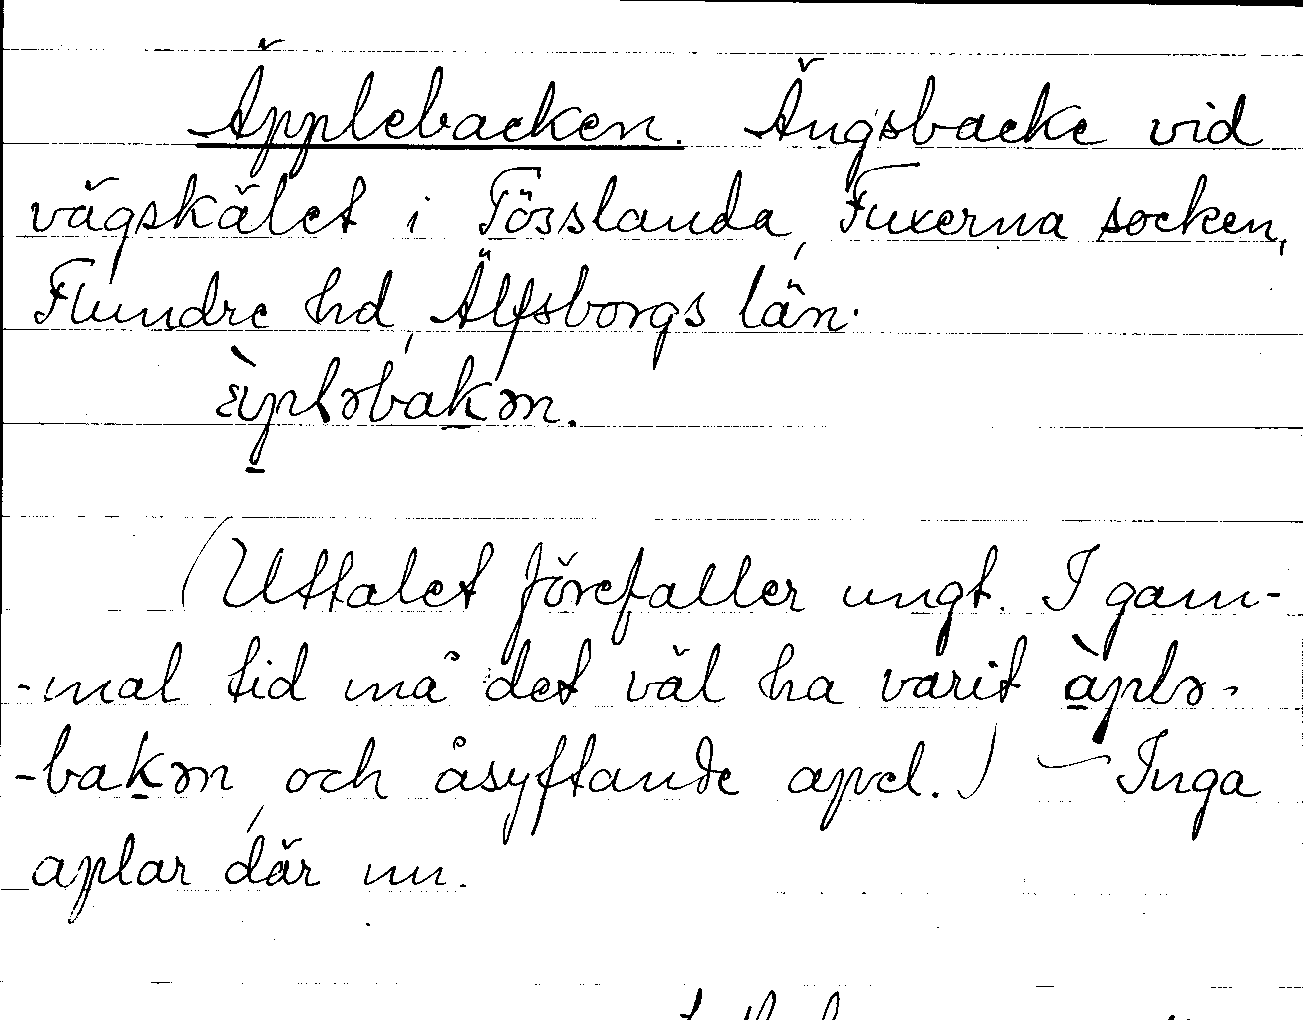 Äpplebacken. Ängsbacke vid
vägskälet i Tösslanda, Fuxerna socken,
Flundre hd, Älfsborgs län.
ɛ̀p̱ləbaḵən.
(Uttalet förefaller ungt. I gam-
-mal tid må det väl ha varit à̱plə-
-baḵən, och åsyftande apel.) — Inga
aplar där nu.